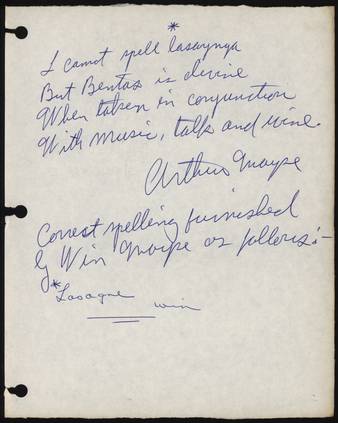 *
I cannot spell lasaynga
But Bentas is devine
When taken in conjunction
With music, talk and wine.
Arthur Mayse
Correct spelling furnished
by Win Mayse as follows:-
*Lasagne
Win